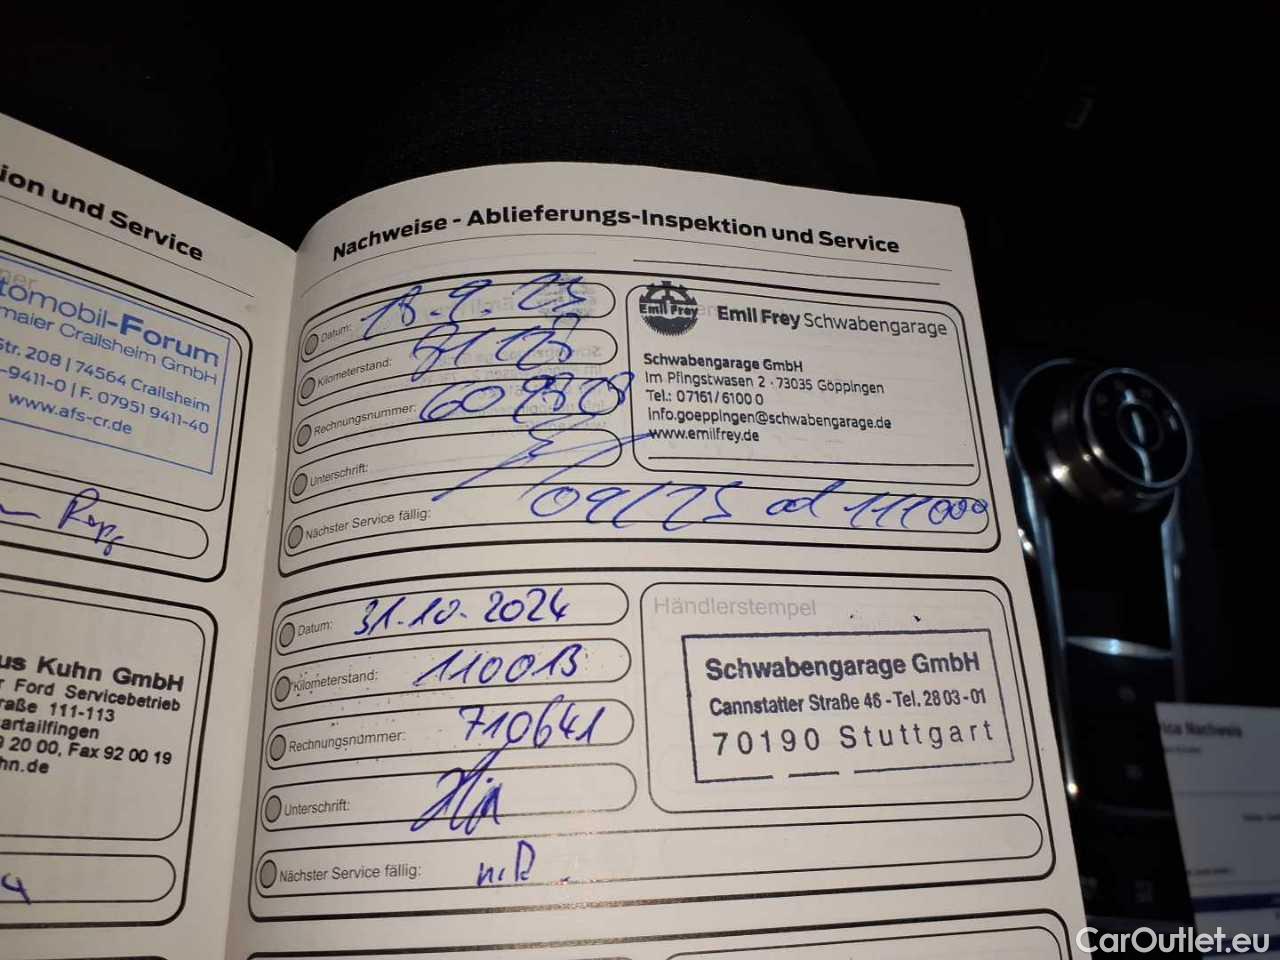 ion und Service
tomobil-Forum
maier Crailsheim GmbH
Str. 208 | 74564 Crailsheim
-9411-0 | F. 07951 9411-40
www.afs-cr.de
us Kuhn GmbH
r Ford Servicebetrieb
raße 111-113
artailfingen
9 20 00, Fax 92 00 19
hn.de
Nachweise - Ablieferungs-Inspektion und Service
Datum: 18.9.23
Kilometerstand:
Rechnungsnummer:
Unterschrift:
Nächster Service fällig: 09/25 od 111000
Emil Frey
Emil Frey Schwabengarage
Schwabengarage GmbH
Im Pfingstwasen 2 · 73035 Göppingen
Tel.: 07161/6100 0
info.goeppingen@schwabengarage.de
www.emilfrey.de
Datum: 31.10.2024
Kilometerstand: 110013
Rechnungsnummer: 710641
Unterschrift:
Nächster Service fällig: n.P.
Händlerstempel
Schwabengarage GmbH
Cannstatter Straße 46 - Tel. 28 03 - 01
70190 Stuttgart
ica Nachweis
CarOutlet.eu